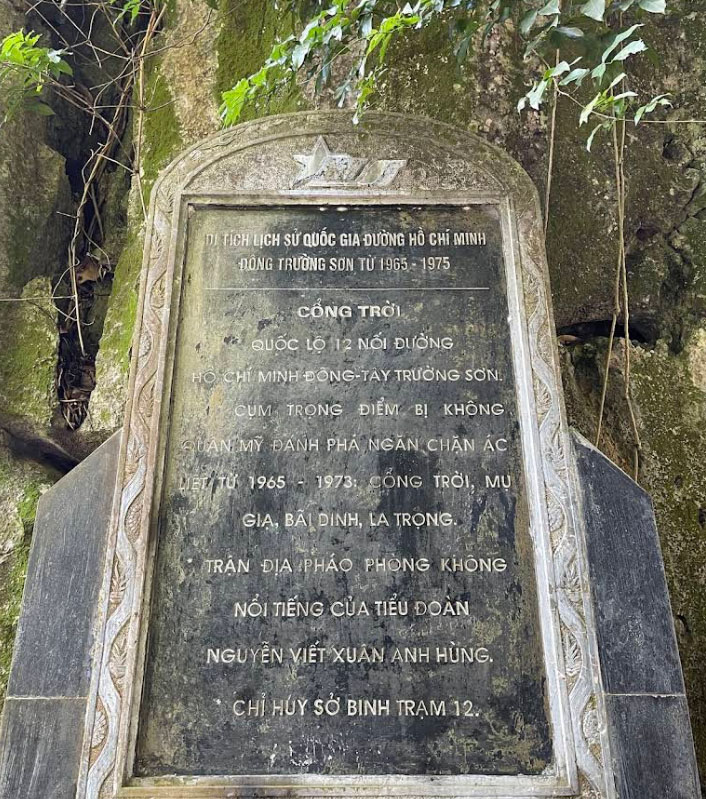 DI TÍCH LỊCH SỬ QUỐC GIA ĐƯỜNG HỒ CHÍ MINH
ĐÔNG TRƯỜNG SƠN TỪ 1965 - 1975
CỔNG TRỜI
QUỐC LỘ 12 NỐI ĐƯỜNG
HỒ CHÍ MINH ĐÔNG-TÂY TRƯỜNG SƠN.
CỤM TRỌNG ĐIỂM BỊ KHÔNG
QUÂN MỸ ĐÁNH PHÁ NGĂN CHẶN ÁC
LIỆT TỪ 1965 - 1973: CỔNG TRỜI, MỤ
GIẠ, BÃI DINH, LA TRỌNG.
TRẬN ĐỊA PHÁO PHÒNG KHÔNG
NỔI TIẾNG CỦA TIỂU ĐOÀN
NGUYỄN VIẾT XUÂN ANH HÙNG.
CHỈ HUY SỞ BINH TRẠM 12.